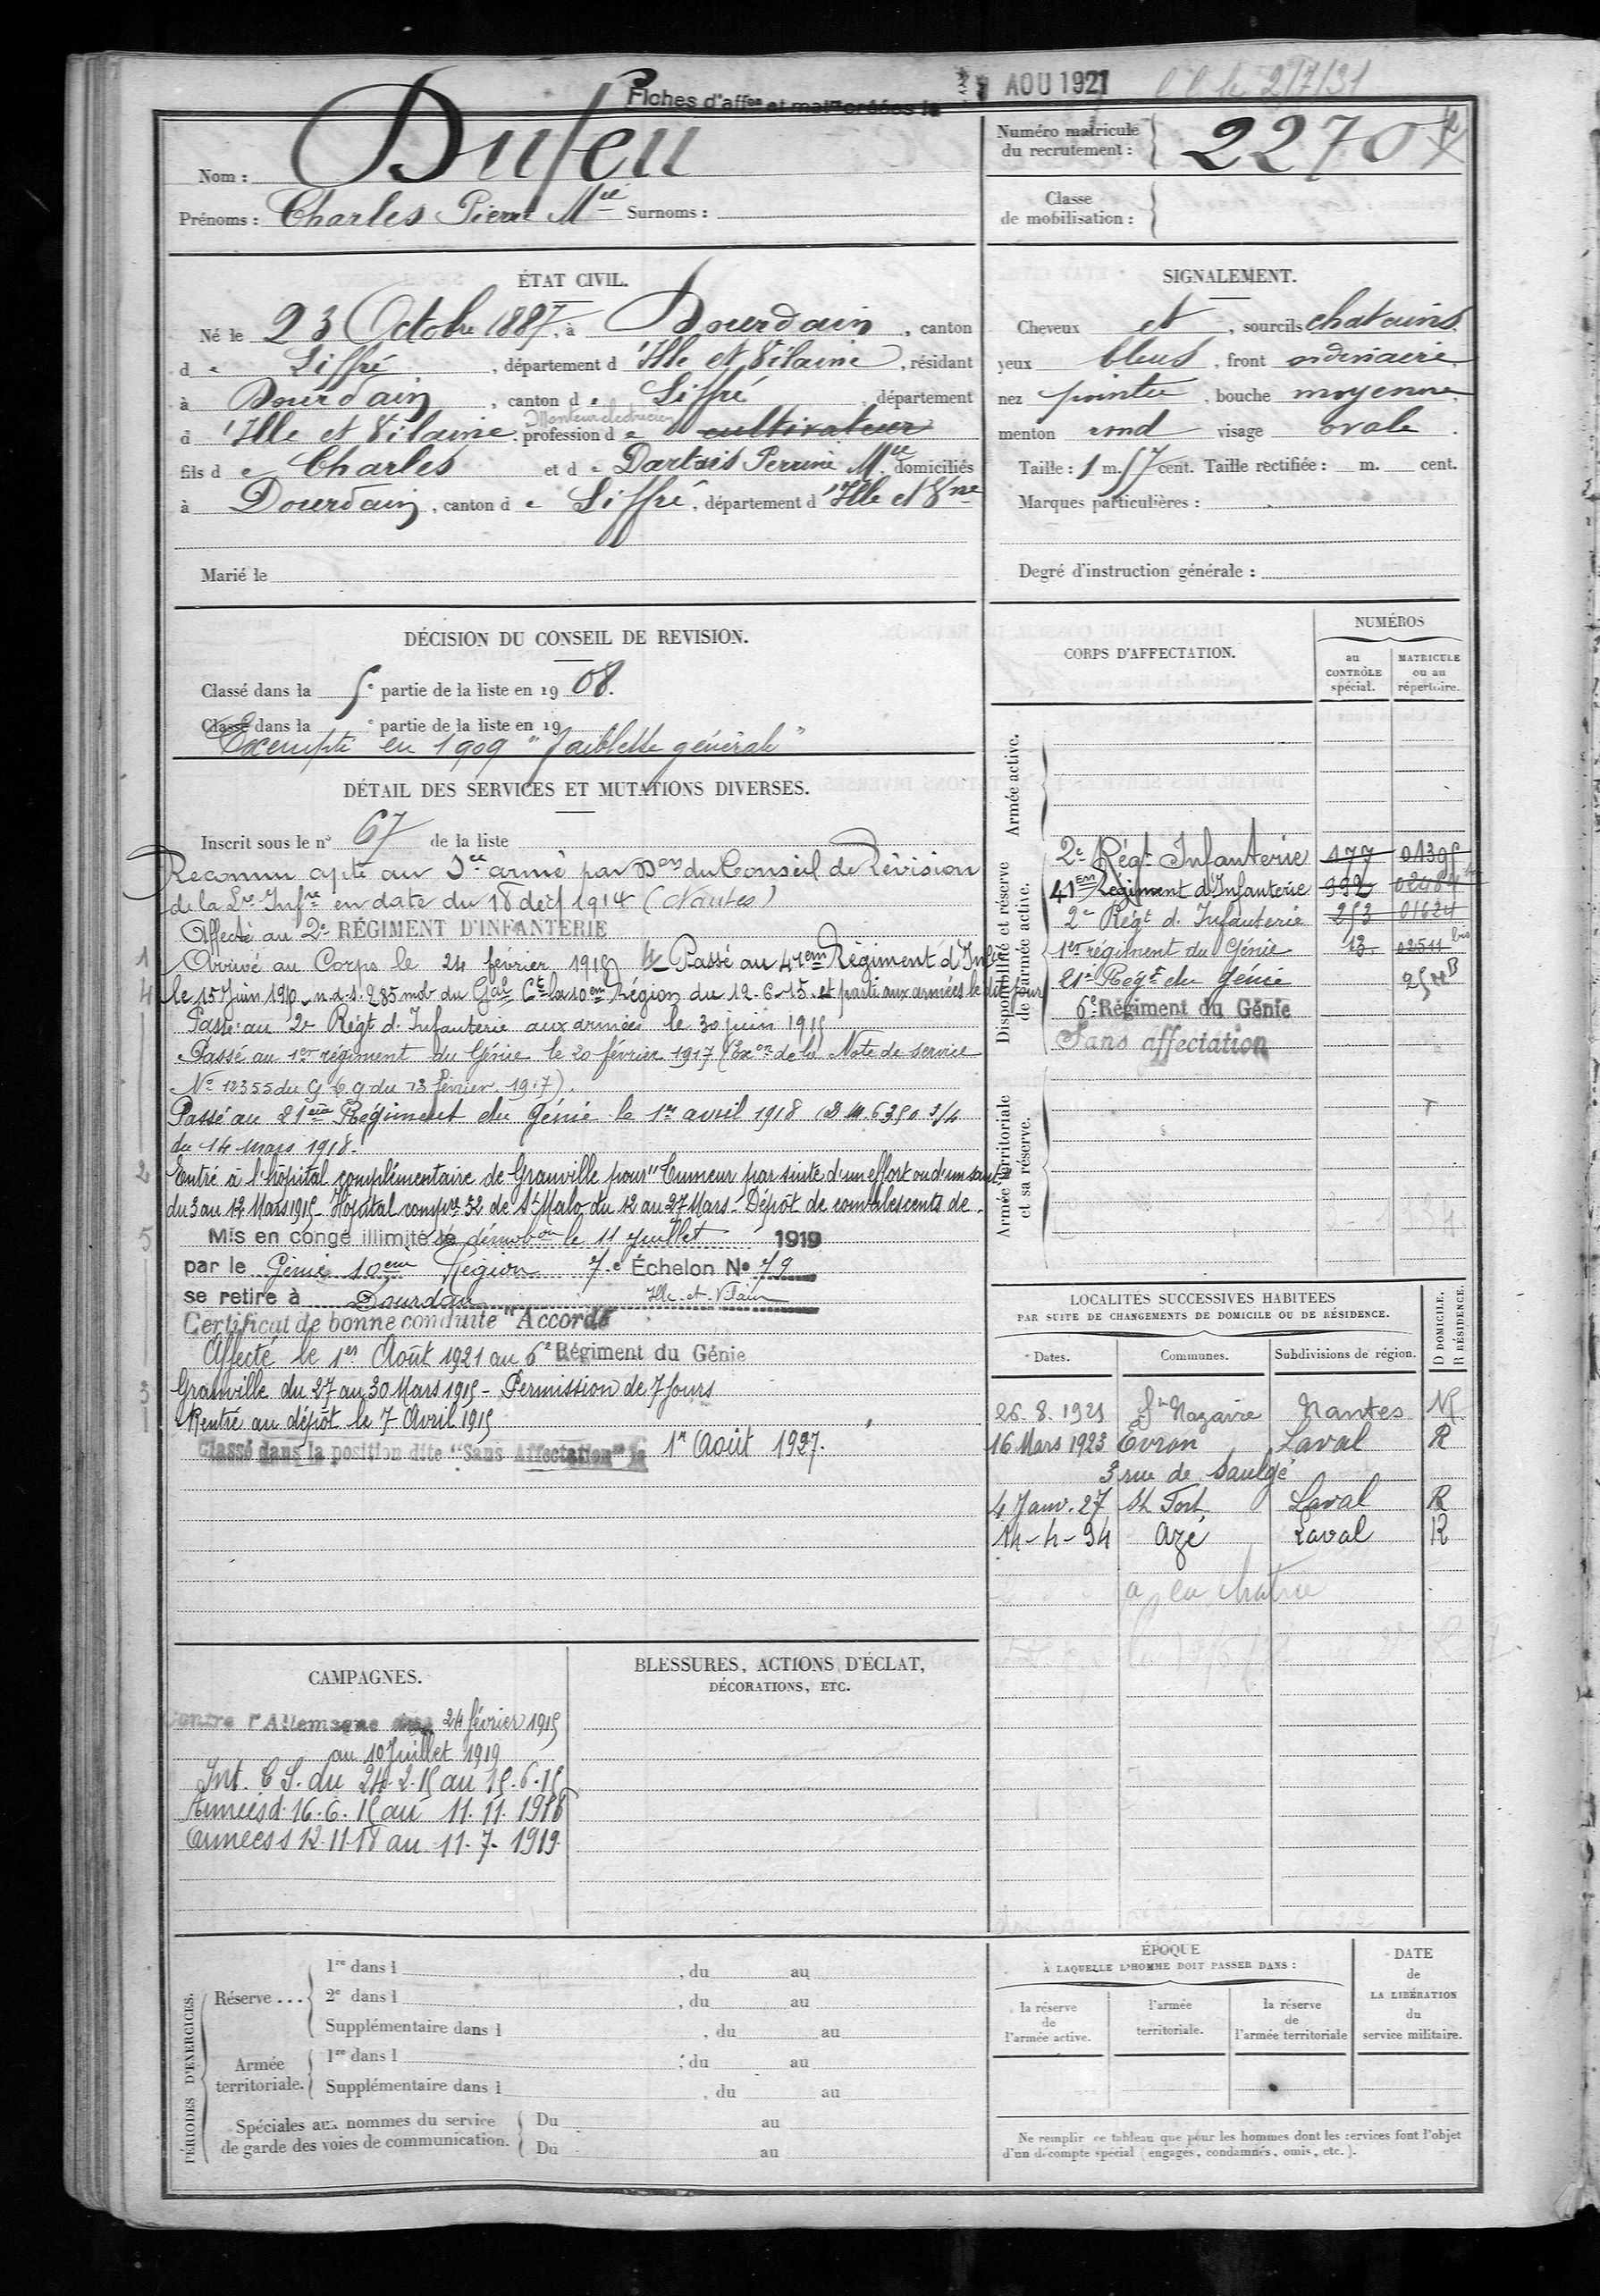 Fiches d'aff^on et mat^le créées le
AOU 1921
le 2/7/31
Nom : Dufeu
Prénoms : Charles Pierre M^ie Surnoms :
Numéro matricule du recrutement : 2270
Classe de mobilisation :
ÉTAT CIVIL.
Né le 23 Octobre 1887, à Dourdain, canton
de Liffré, département d'Ille et Vilaine, résidant
à Dourdain, canton de Liffré, département
d'Ille et Vilaine, profession de cultivateur Monteur electricien
fils de Charles et de Dartois Perrine M^ie domiciliés
à Dourdain, canton de Liffré, département d'Ille et V^ne
Marié le
SIGNALEMENT.
Cheveux et, sourcils chatains
yeux bleus, front ordinaire
nez pointu, bouche moyenne,
menton rond visage ovale.
Taille : 1 m. 57 cent. Taille rectifiée : m. cent.
Marques particulières :
Degré d'instruction générale :
DÉCISION DU CONSEIL DE REVISION.
Classé dans la 5e partie de la liste en 1908.
Classé dans la e partie de la liste en 19
Exempté en 1909 "faiblesse générale"
DÉTAIL DES SERVICES ET MUTATIONS DIVERSES.
Inscrit sous le n° 67 de la liste
Reconnu apte au S^ce armé par D^on du Conseil de Révision
de la L^re Inf^re en date du 18 dec^e 1914 (Nantes)
Affecté au 2e RÉGIMENT D'INFANTERIE
1 Arrivé au Corps le 24 février 1915 4 Passé au 41^em Régiment d'Inf^ie
4 le 15 Juin 1915 n.d.s. 285 mob du G^al C^t la 10^em Région du 12-6-15. et parti aux armées le dit jour
Passé au 2e Régt d'Infanterie aux armées le 30 juin 1915
Passé au 1er régiment du Génie le 20 février 1917 (Ex^on de la Note de service
N° 12355 du G.Q.G du 13 février 1917).
Passé au 21^eme Régiment du Génie le 1er avril 1918 (D M. 6350 3/4
du 14 mars 1918.
2 Entré à l'hôpital complémentaire de Granville pour "Tumeur par suite d'un effort ou d'un saut"
du 3 au 12 Mars 1915 - Hôpital comp^re 52 de St Malo du 12 au 27 Mars - Dépôt de convalescents de
5 Mis en congé illimité de démob^on le 11 Juillet 1919
par le Génie 10^eme Région 7e Échelon N° 79
se retire à Dourdan Ille-et-Vilaine
Certificat de bonne conduite "Accordé"
Affecté le 1er Août 1921 au 6e Régiment du Génie
3 Granville du 27 au 30 Mars 1915 - Permission de 7 Jours
Rentré au dépôt le 7 Avril 1915
Classé dans la position dite "Sans Affectation" le 1er Août 1927.
CORPS D'AFFECTATION.
NUMÉROS
au CONTRÔLE spécial.
MATRICULE ou au répertoire.
Armée active.
Disponibilité et réserve de l'armée active.
2e Régt Infanterie 177 01395
41em Régiment d'Infanterie 992 02484
2e Régt d'Infanterie 253 01624
1er régiment du Génie 13. 02511 bis
21e Régt du Génie
6e Régiment du Génie
Sans affectation
Armée territoriale et sa réserve.
LOCALITÉS SUCCESSIVES HABITEES
PAR SUITE DE CHANGEMENTS DE DOMICILE OU DE RÉSIDENCE.
D DOMICILE. R RÉSIDENCE.
Dates. Communes. Subdivisions de région.
26.8.1921 St Nazaire Nantes R
16 Mars 1923 Evron Laval R
3 rue de Saulgé
4 Janv. 27 St Fort Laval R
14-4-34 Azé Laval R
CAMPAGNES.
Contre l'Allemagne du 24 février 1915
au 10 Juillet 1919
Int. C S. du 24-2-15 au 15.6.15
Armées d. 16.6.15 au 11.11.1918
Armées s 12-11-18 au 11.7.1919.
BLESSURES, ACTIONS D'ÉCLAT,
DÉCORATIONS, ETC.
PÉRIODES D'EXERCICES.
Réserve ... 1re dans l , du au
2e dans l , du au
Supplémentaire dans l , du au
Armée territoriale. 1re dans l , du au
Supplémentaire dans l , du au
Spéciales aux hommes du service Du au
de garde des voies de communication. Du au
ÉPOQUE
À LAQUELLE L'HOMME DOIT PASSER DANS :
la réserve de l'armée active.
l'armée territoriale.
la réserve de l'armée territoriale
DATE de LA LIBÉRATION du service militaire.
Ne remplir ce tableau que pour les hommes dont les services font l'objet
d'un décompte spécial (engagés, condamnés, omis, etc.).